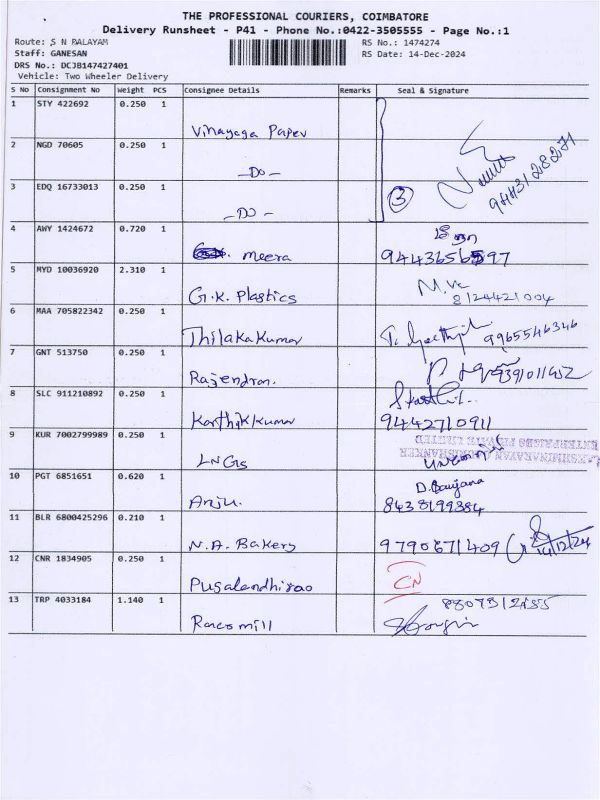 THE PROFESSIONAL COURIERS, COIMBATORE
Delivery Runsheet - P41 - Phone No.:0422-3505555 - Page No.:1
Route: S N PALAYAM
Staff: GANESAN
DRS No.: DCJB147427401
Vehicle: Two Wheeler Delivery
RS No.: 1474274
RS Date: 14-Dec-2024
S No Consignment No Weight PCS Consignee Details Remarks Seal & Signature
1 STY 422692 0.250 1
Vinayaga Paper
2 NGD 70605 0.250 1
-Do-
3 EDQ 16733013 0.250 1
-Do-
3
9443128271
4 AWY 1424672 0.720 1
meera
5 MYD 10036920 2.310 1
G.K. Plastics
8124421004
6 MAA 705822342 0.250 1
Thilakakumar
9965546346
7 GNT 513750 0.250 1
Rajendran.
8 SLC 911210892 0.250 1
Karthikkumar
9442710911
9 KUR 7002799989 0.250 1
LNGs
LAKSHMINARAYAN GOURISHANKER
ENTERPRISES PRIVATE LIMITED
10 PGT 6851651 0.620 1
Anju.
8438199384
11 BLR 6800425296 0.210 1
N.A. Bakery
9790671409
14/12/24
12 CNR 1834905 0.250 1
Pugalendhirao
CN
13 TRP 4033184 1.140 1
Raco mill